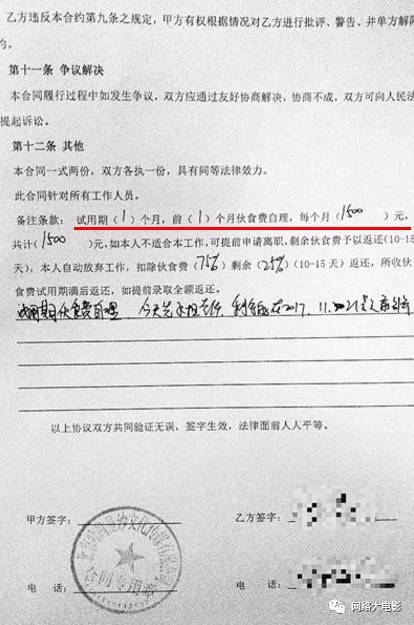 乙方违反本合约第九条之规定，甲方有权根据情况对乙方进行批评、警告、并单方解除
约。
第十一条 争议解决
本合同履行过程中如发生争议，双方应通过友好协商解决，协商不成，双方可向人民法
提起诉讼。
第十二条 其他
本合同一式两份，双方各执一份，具有同等法律效力。
此合同针对所有工作人员。
备注条款：试用期（1）个月，前（1）个月伙食费自理，每个月（1500）元，
共计（1500）元，如本人不适合本工作，可提前申请离职，剩余伙食费予以返还（10-15
天），本人自动放弃工作，扣除伙食费（75%）剩余（25%）（10-15 天）返还，所收伙
食费试用期满后返还，如提前录取全额返还。
试用期伙食费自理 今天先
在2017.11.
以上协议双方共同验证无误，签字生效，法律面前人人平等。
甲方签字： 乙方签字：
文化传媒有限公司
合同专用章
电 话： 电 话：
网络大电影